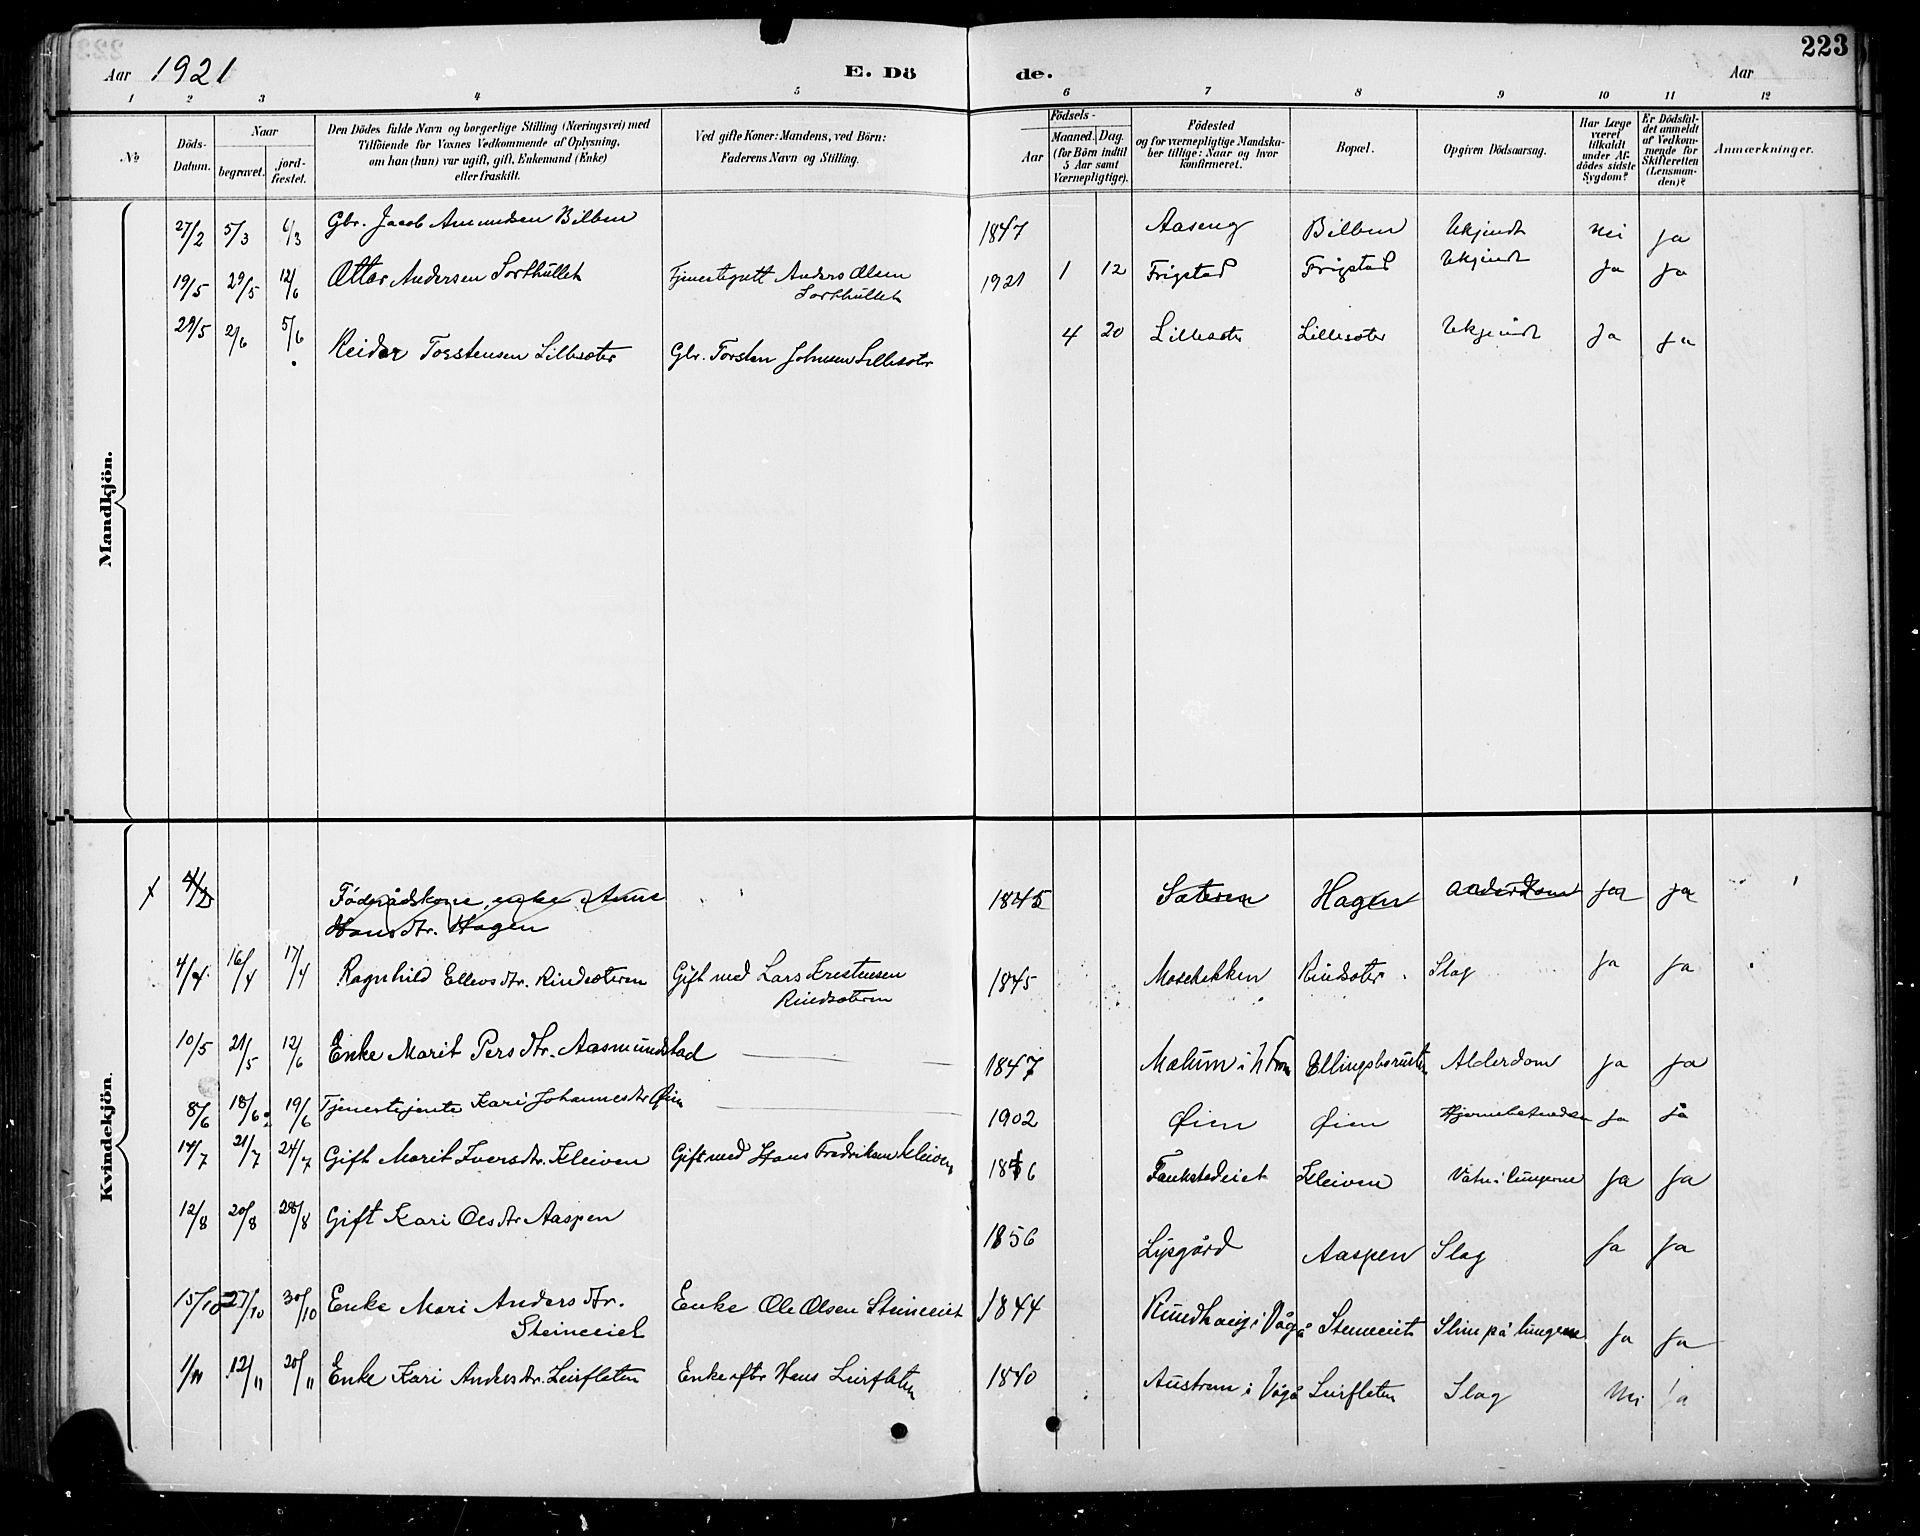 Aar 1921 E. Dö de. Aar 223
1 2 3 4 5 6 7 8 9 10 11 12
№
Döds-
Datum.
Naar
begravet.
jord-
fæstet.
Den Dödes fulde Navn og borgerlige Stilling (Næringsvei) med
Tilföiende for Voxnes Vedkommende af Oplysning,
om han (hun) var ugift, gift, Enkemand (Enke)
eller fraskilt.
Ved gifte Koner: Mandens, ved Börn:
Faderens Navn og Stilling.
Födsels-
Aar
Maaned.
Dag.
(for Börn indtil
5 Aar samt
Værnepligtige).
Födested
og for værnepligtige Mandska-
ber tillige: Naar og hvor
konfirmeret.
Bopæl.
Opgiven Dödsaarsag.
Har Læge
været
tilkaldt
under Af-
dödes sidste
Sygdom?
Er Dödsfal-
det anmeldt
af Vedkom-
mende for
Skifteretten
(Lensman-
den)?
Anmærkninger.
Mandkjön.
27/2 5/3 6/3 Gbr. Jacob Amundsen Bilben 1847 Aaseng Bilben Ukjendt Nei Ja
19/5 29/5 12/6 Ottar Andersen Sorthullet Tjenestegutt Anders Olsen 1921 1 12 Frigstad Frigstad Ukjendt Ja Ja
Sorthullet
29/5 2/6 5/6 Reidar Torstensen Lillesæter Gbr. Torsten Johnsen Lillesæter 4 20 Lillesæter Lillesæter Ukjendt Ja Ja
Kvindekjön.
4/2 Føderådskone, enke Anne 1845 Sæteren Hagen Alderdom Ja Ja
Hansdtr. Hagen
4/4 16/4 17/4 Ragnhild Ellevsdtr. Rindsæteren Gift med Lars Kristensen 1845 Rindsæter Slag Ja Ja
Rindsæteren
10/5 21/5 12/6 Enke Marit Persdtr. Aasmundstad 1847 Mælum i N Fron Alderdom Ja Ja
8/6 18/6 19/6 Tjenestejente Kari Johannesdtr Øien 1902 Øien Øien Ja Ja
14/7 21/7 24/7 Gift Marit Iversdtr. Kleiven Gift med Hans Fredriksen Kleiven 1856 Kleiven Vatn i lungerne Ja Ja
12/8 20/8 28/8 Gift Kari Olsdtr Aaspen 1856 Lysgård Aaspen Slag Ja Ja
15/10 27/10 30/10 Enke Mari Andersdtr. Enke Ole Olsen Steineeiet 1844 Vågå Steineeiet Slim på lungene Ja Ja
Steineeiet
1/11 12/11 20/11 Enke Kari Andersdtr. Leirfleten Enke efter Hans Leirfleten 1840 i Vågå Leirfleten Slag Nei Ja